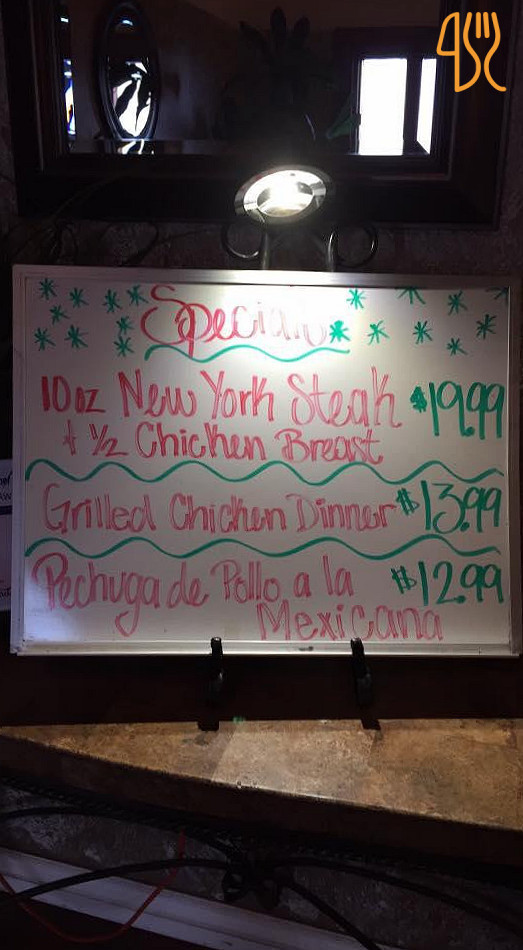 Specials
10oz New York Steak $19.99
+ 1/2 Chicken Breast
Grilled Chicken Dinner $13.99
Pechuga de Pollo a la $12.99
Mexicana